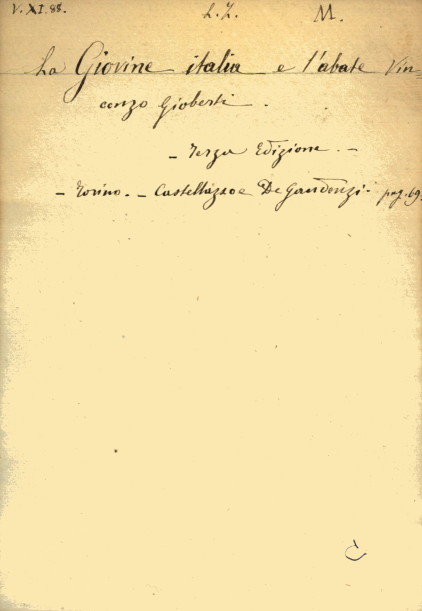 V. XI. 88. L. Z. M.
La Giovine italia e l'abate Vin=
cenzo Gioberti.
— Terza Edizione. —
— Torino. — Castellazzo e De Gaudenzi. pag. 69.